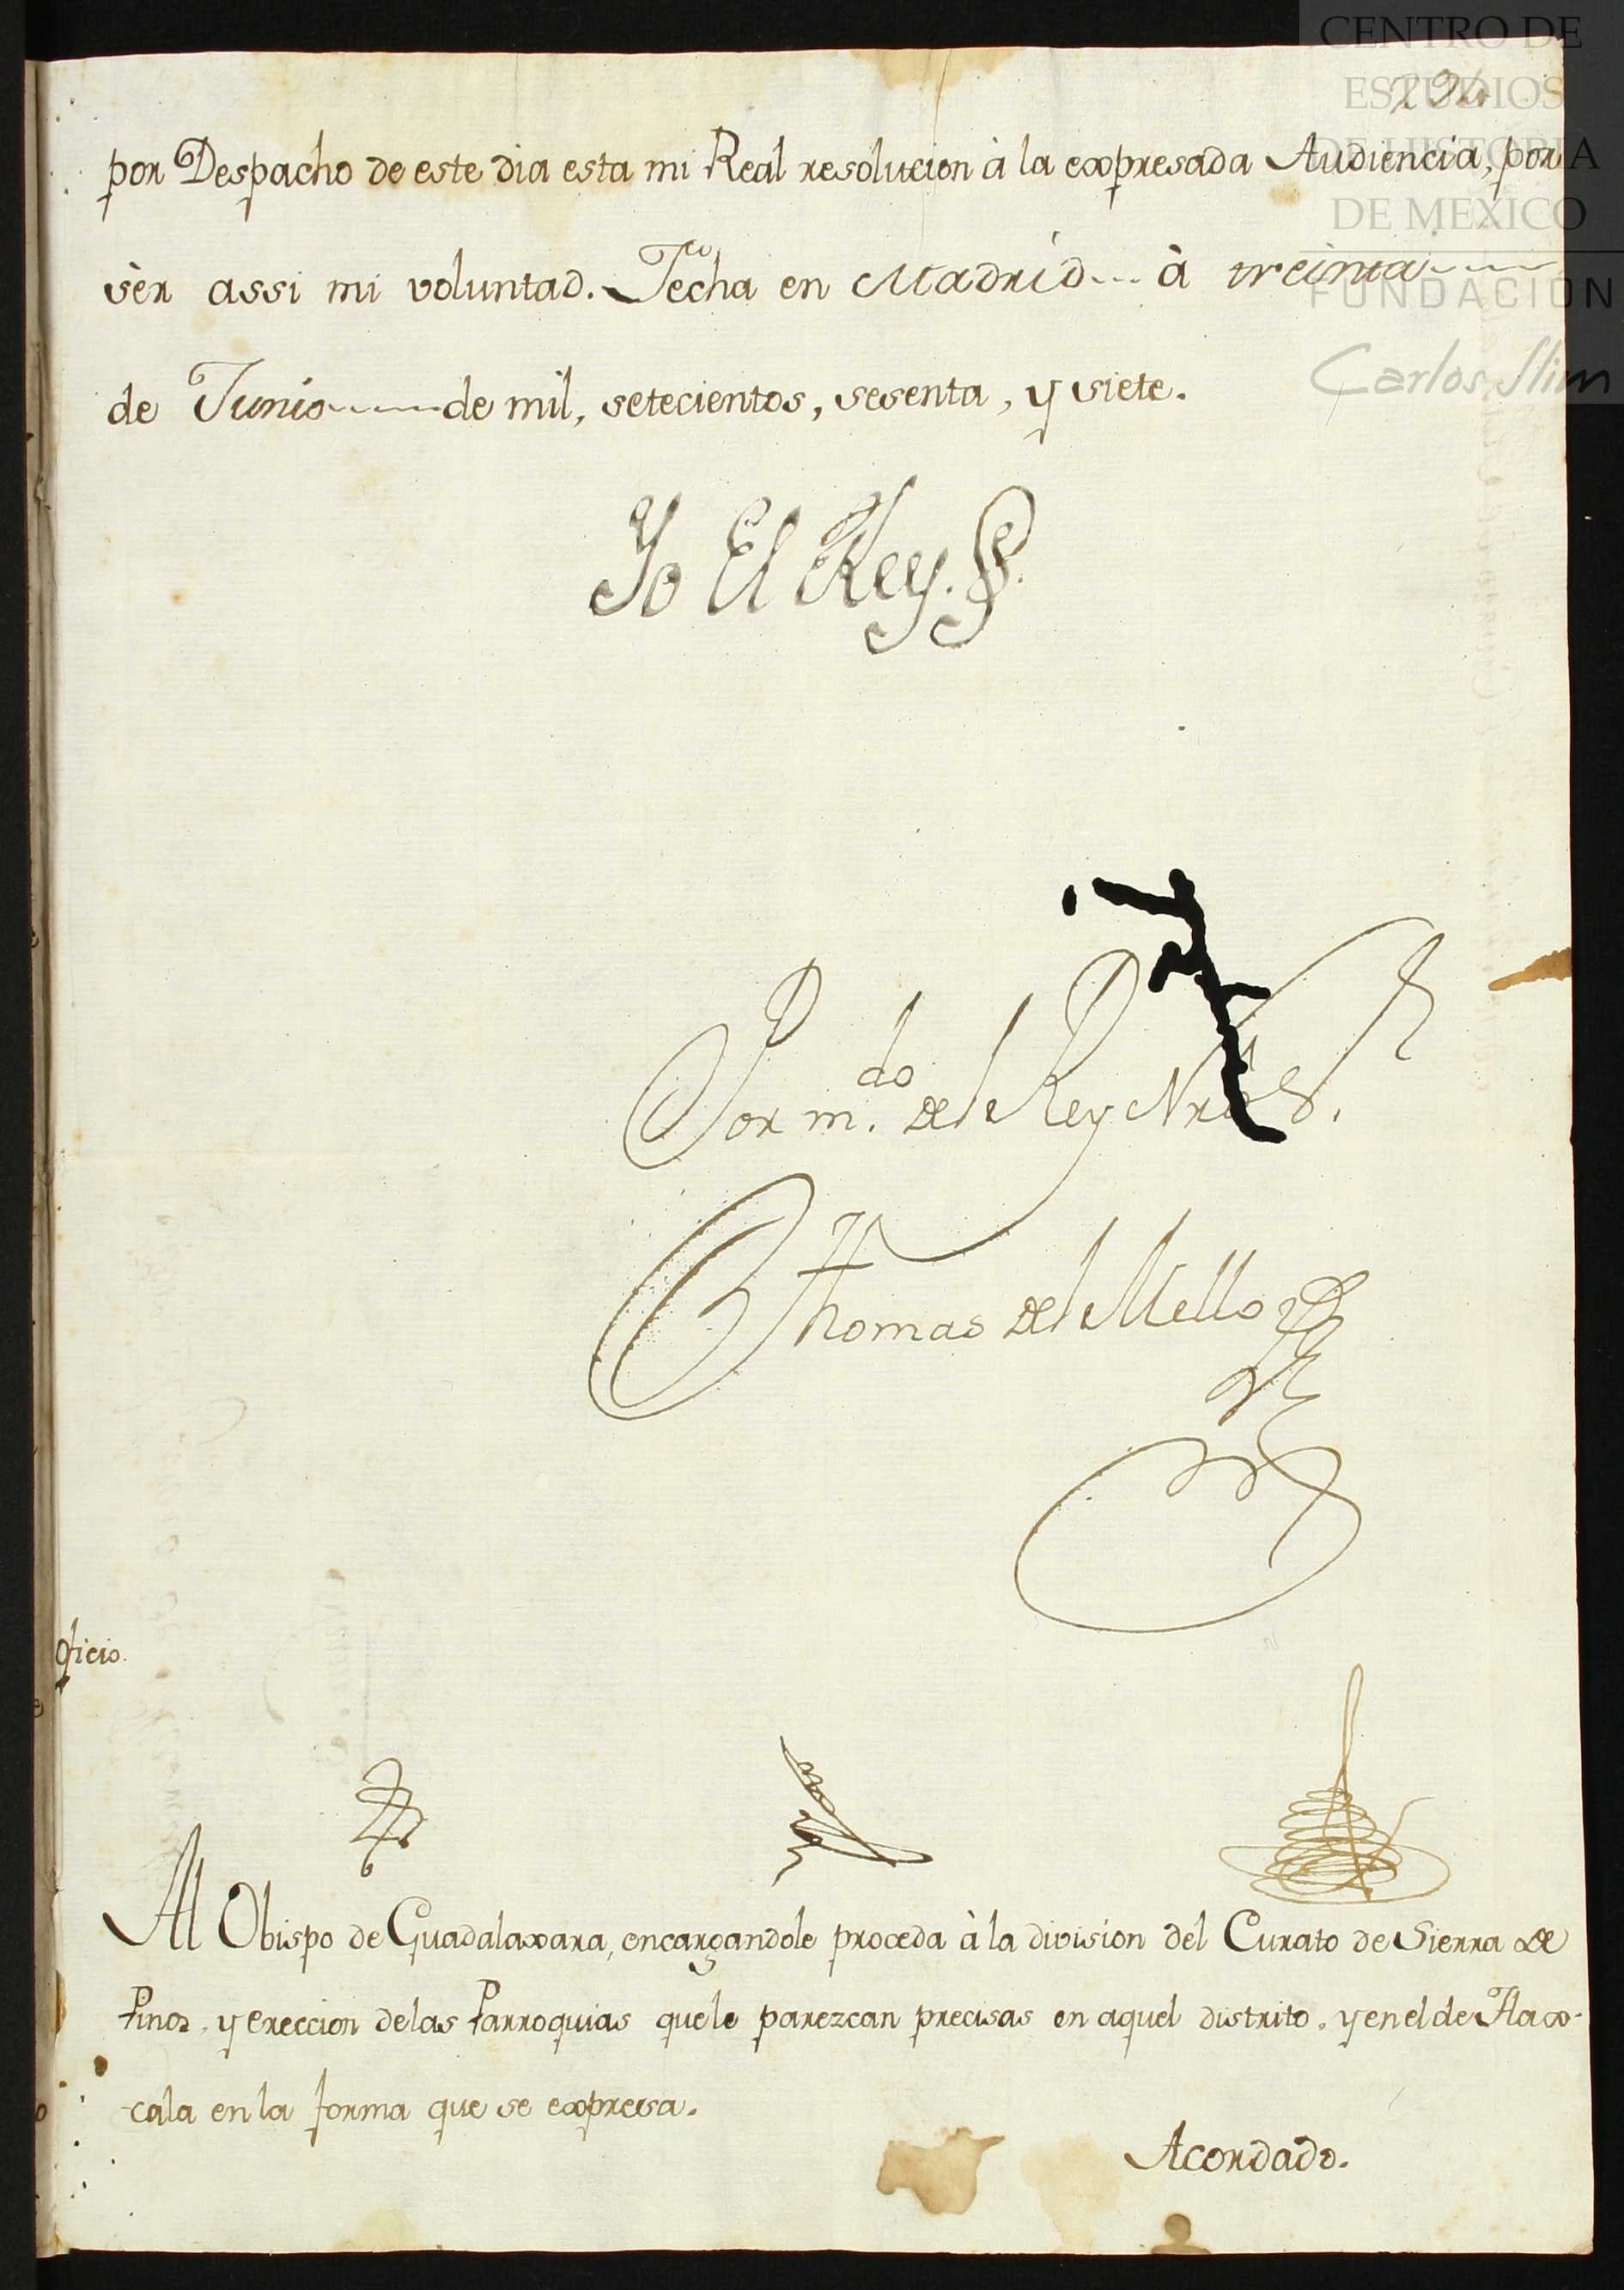 CENTRO DE
ESTUDIOS
DE HISTORIA
DE MEXICO
FUNDACIÓN
Carlos Slim
por Despacho de este dia esta mi Real resolucion à la expresada Audiencia, por
sèr assi mi voluntad. Fecha en Madrid à treinta
de Junio de mil, setecientos, sesenta, y siete.
Yo El Rey.
Por m.do del Rey Nrô S.
Thomas del Mello
Oficio.
Al Obispo de Guadalaxara, encargandole proceda à la division del Curato de Sierra de
Pinos, y ereccion delas Parroquias quele parezcan precisas en aquel distrito, y en el de Tlax-
cala en la forma que se expresa.
Acordado.